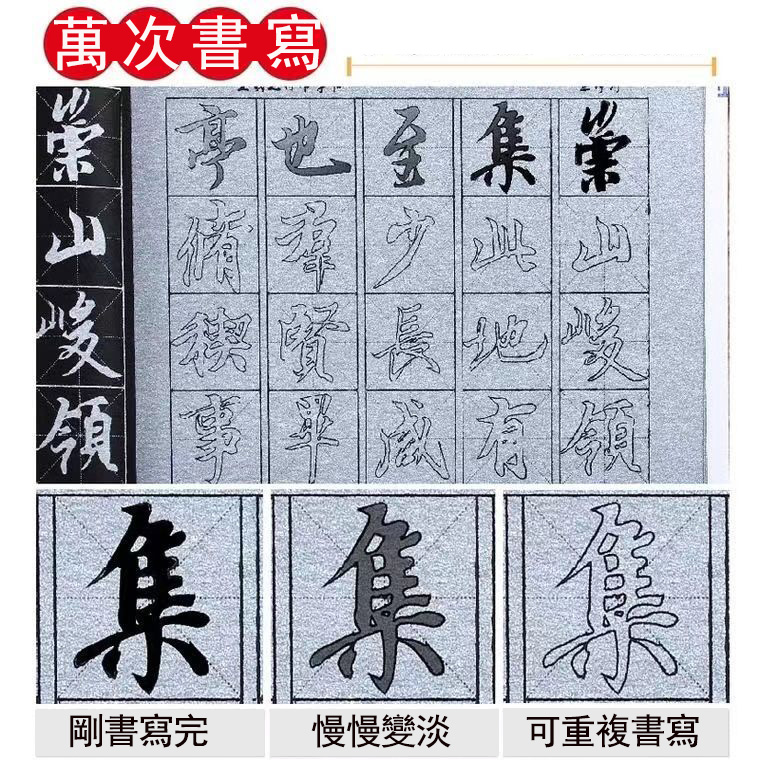 萬次書寫
崇山峻領
崇山峻領
集此地有
至少長咸
也羣賢畢
亭脩禊事
集
集
集
剛書寫完
慢慢變淡
可重複書寫